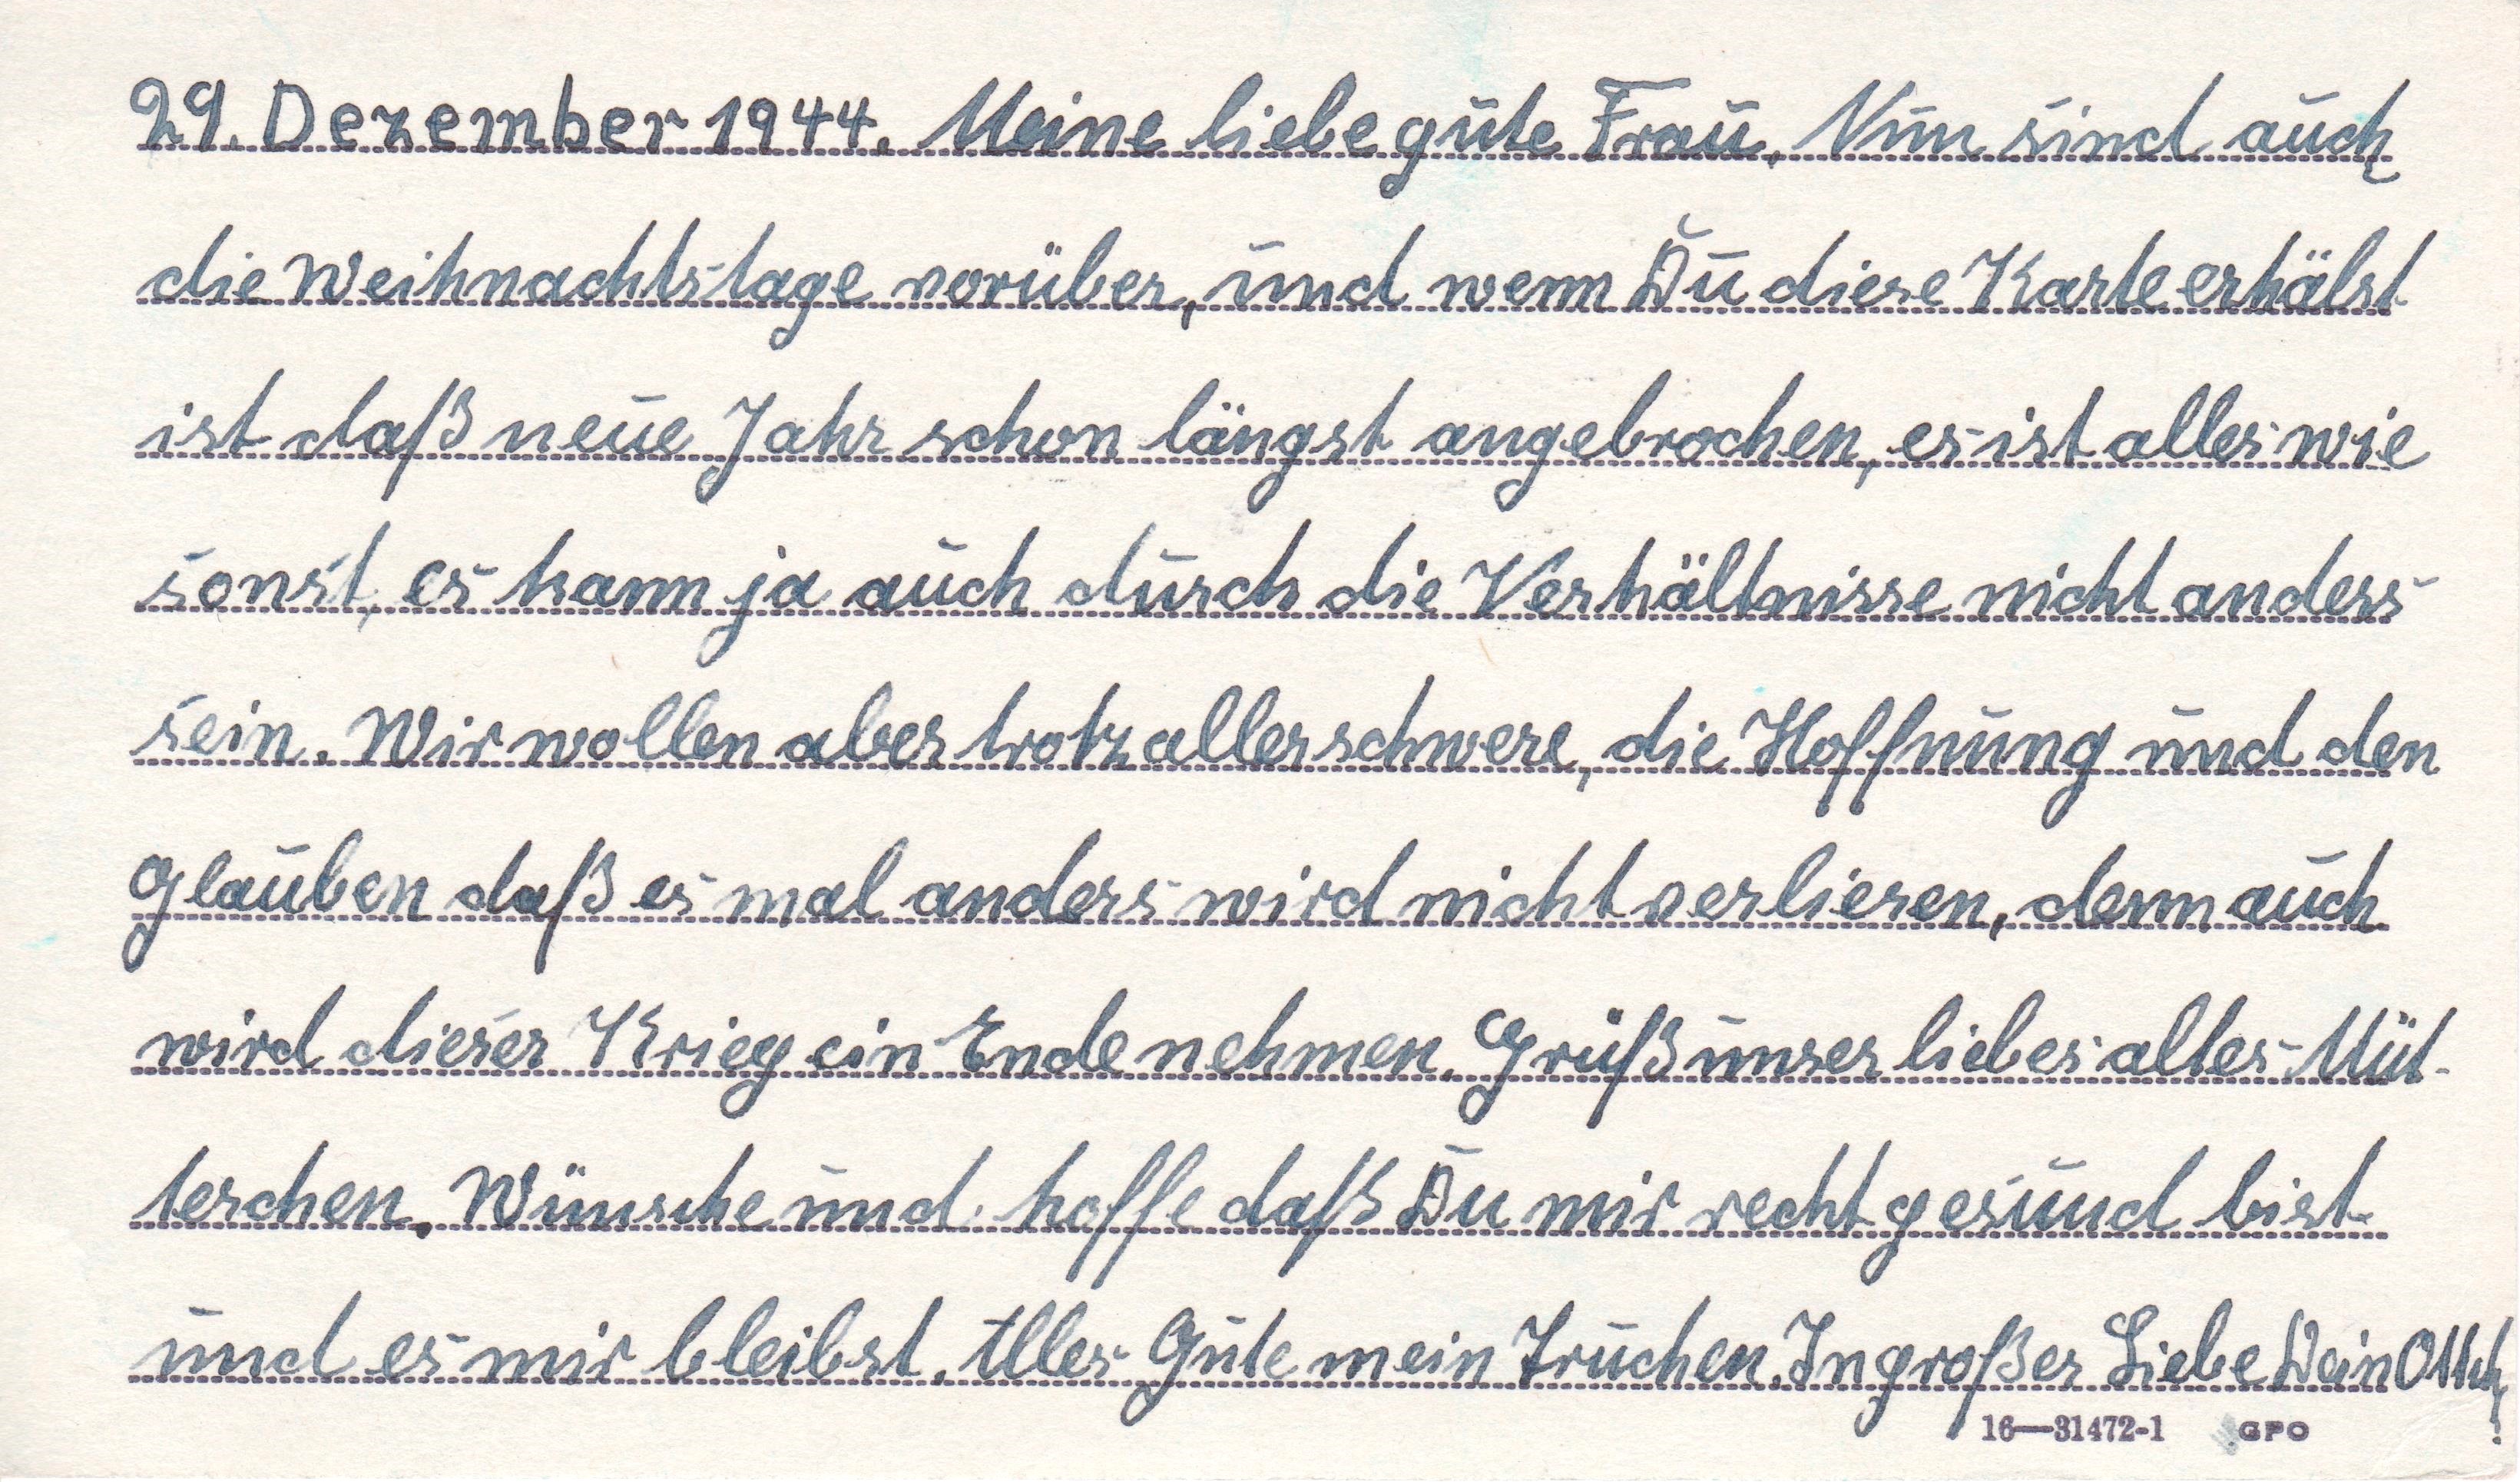 29. Dezember 1944. Meine liebe gute Frau. Nun sind auch
die Weihnachtstage vorüber, und wenn Du diese Karte erhälst
ist daß neue Jahr schon längst angebrochen, es ist alles wie
sonst, es kann ja auch durch die Verhältnisse nicht anders
sein. Wir wollen aber trotz aller schwere, die Hoffnung und den
Glauben daß es mal anders wird nicht verlieren, denn auch
wird dieser Krieg ein Ende nehmen. Grüß unser liebes altes Müt-
terchen. Wünsche und hoffe daß Du mir recht gesund bist
und es mir bleibst. Alles Gute mein Truchen. In großer Liebe Dein
16—31472-1 GPO